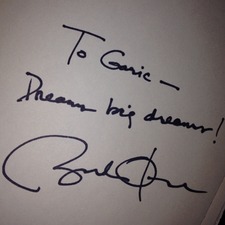 To Garic —
Dream big dreams!